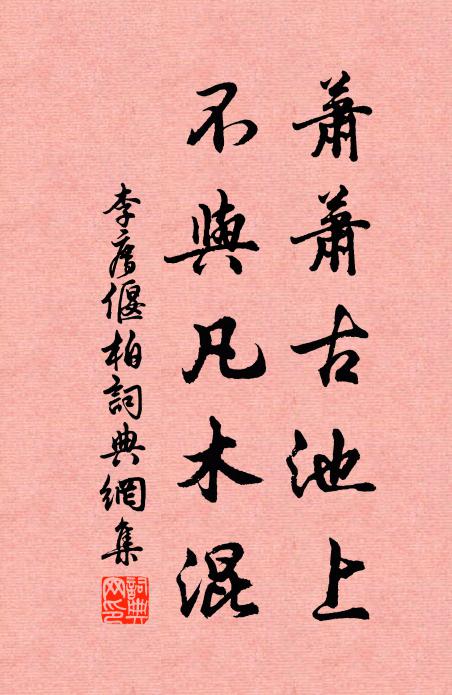 蕭蕭古池上
不與凡木混
李廌偃柏詞典網集
詞典网印